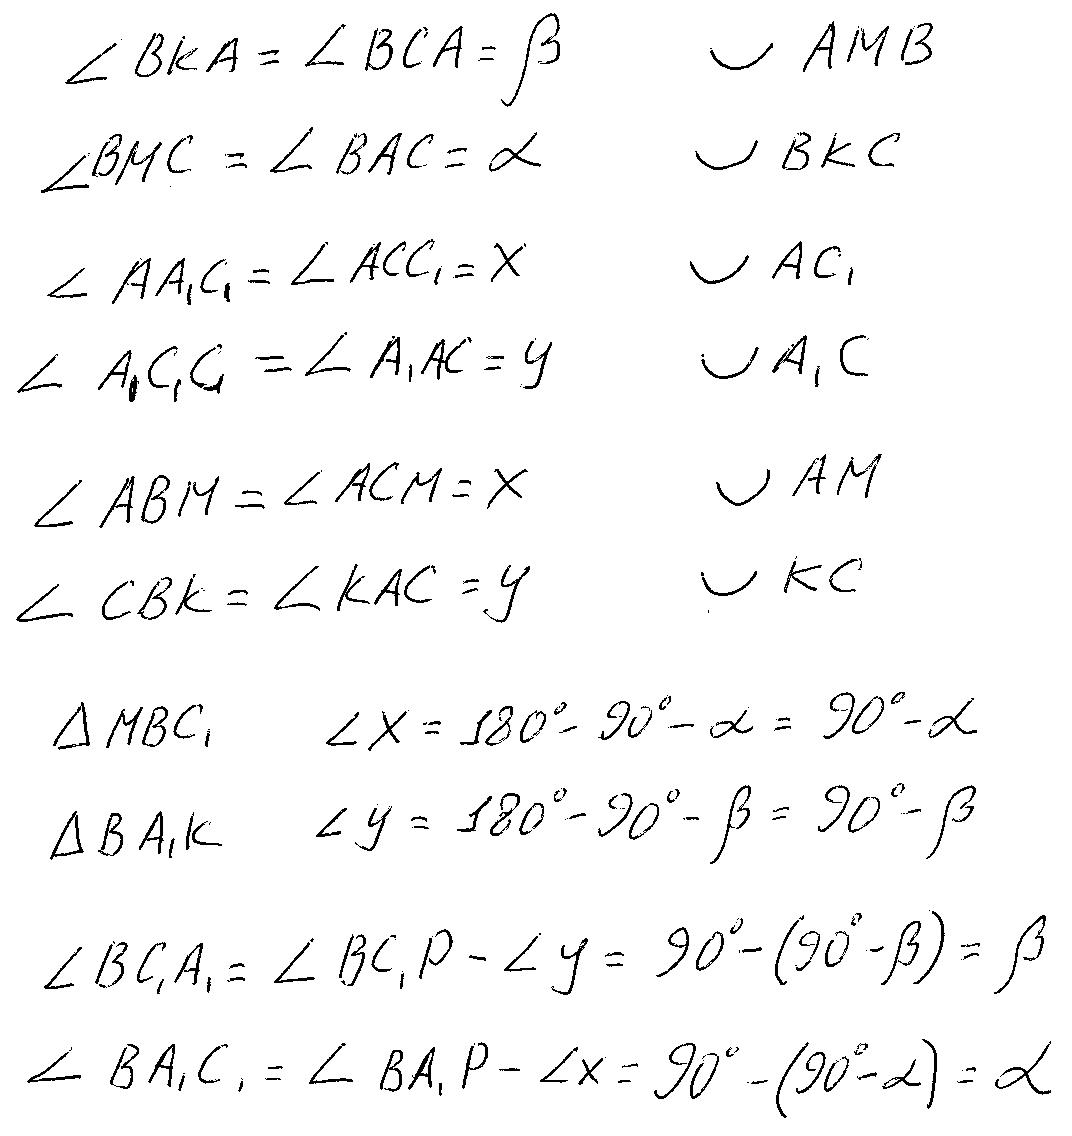 ∠BKA = ∠BCA = β ◡ AMB
∠BMC = ∠BAC = α ◡ BKC
∠AA₁C₁ = ∠ACC₁ = x ◡ AC₁
∠A₁C₁C = ∠A₁AC = y ◡ A₁C
∠ABM = ∠ACM = x ◡ AM
∠CBK = ∠KAC = y ◡ KC
ΔMBC₁ ∠x = 180° - 90° - α = 90° - α
ΔBA₁K ∠y = 180° - 90° - β = 90° - β
∠BC₁A₁ = ∠BC₁P - ∠y = 90° - (90° - β) = β
∠BA₁C₁ = ∠BA₁P - ∠x = 90° - (90° - α) = α